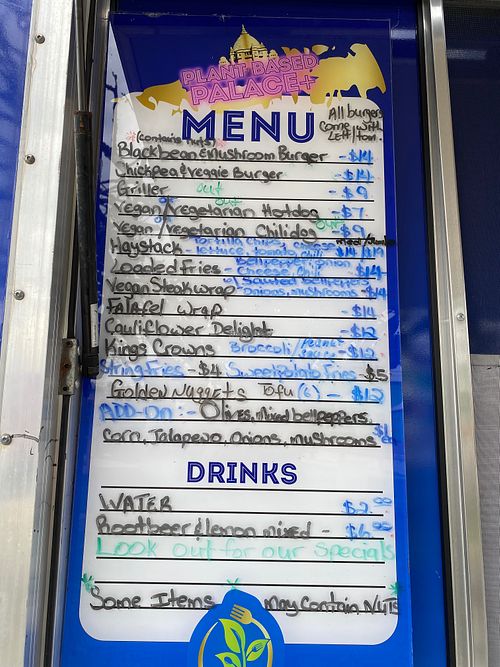 PLANT-BASED
PALACE+
MENU
All burgers
come with
Lett/tom.
*(contains nuts)*
Blackbean & mushroom Burger - $14
Chickpea & veggie Burger - $14
Griller out - $9
Vegan/vegetarian Hotdog out - $7
Vegan/vegetarian Chilidog out $9
Haystack - Tortilla chips, cheese, lettuce, tomato, chili $14
Loaded Fries - Bellpepper, onion, cheese, chili $14
Vegan Steak wrap w/ sauted bellpeppers onions, mushrooms - $14
Falafel wrap - $14
Cauliflower Delight - $12
Kings Crowns Broccoli/ - $12
String Fries - $4 Sweetpotato Fries - $5
Golden Nuggets Tofu (6) - $12
ADD-On :- Olives, mixed bellpeppers,
Corn, Jalapeno, Onions, mushrooms
DRINKS
WATER $2.00
Rootbeer & lemon mixed - $6.00
Look out for our specials
*Some Items * May Contain Nuts*